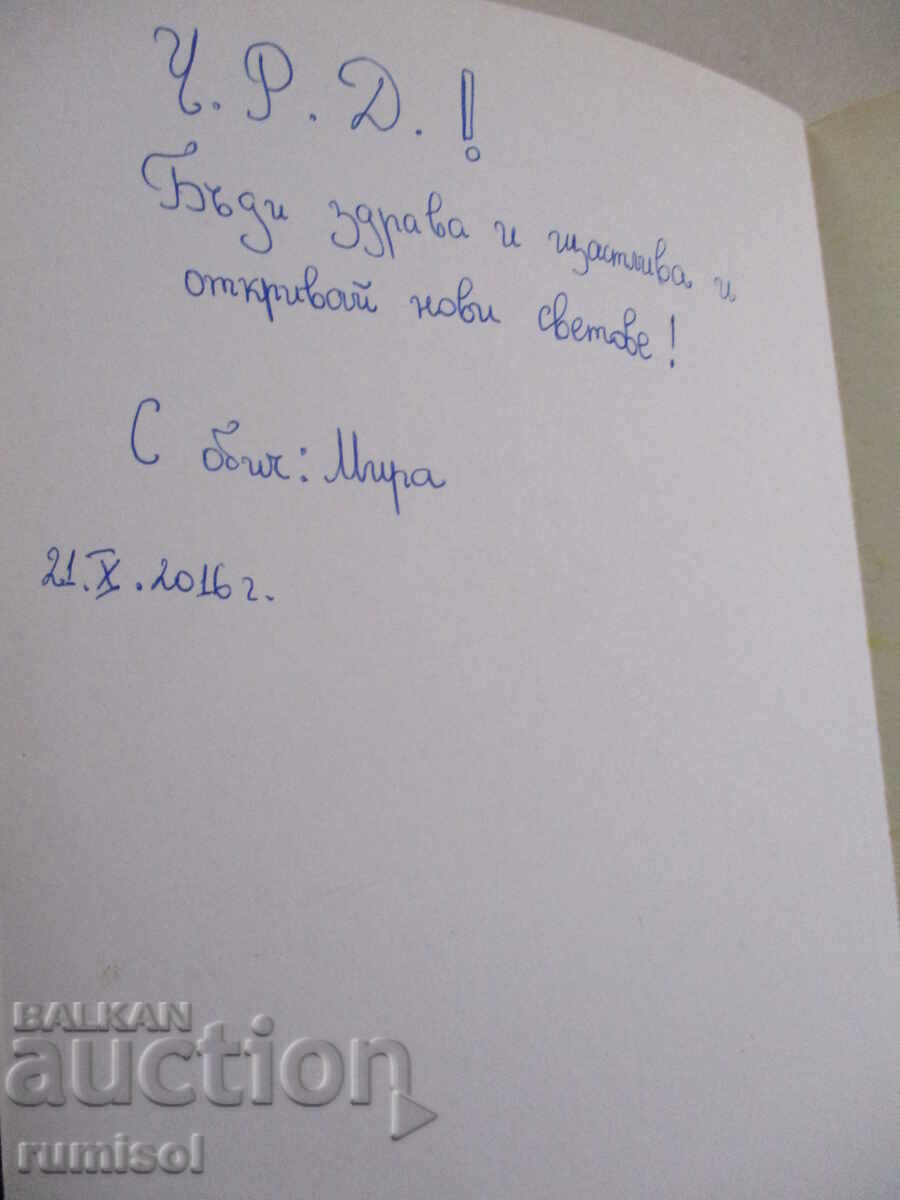 Ч.Р.Д.!
Бъди здрава и щастлива и
откривай нови светове!
С обич: Мира
21.X.2016 г.
BALKAN
auction
rumisol